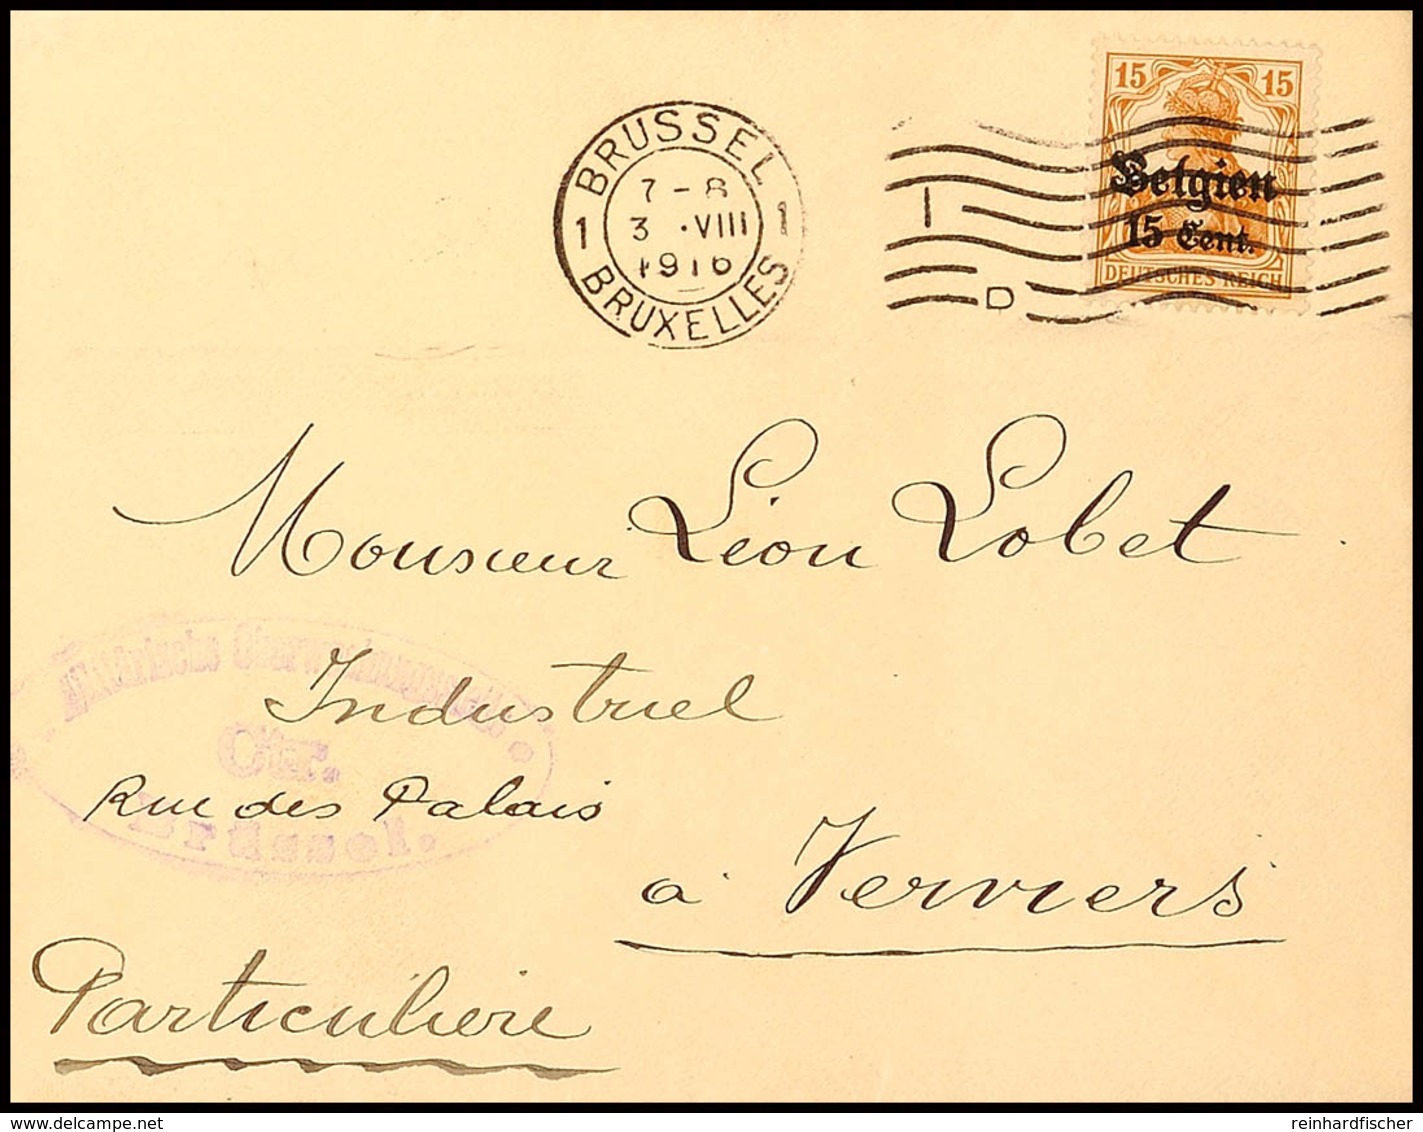 15 15
Belgien
15 Cent.
DEUTSCHES REICH
BRUSSEL
7 - 8
1 3 .VIII 1
1916
BRUXELLES
I
D
Monsieur Léon Lobet
Industriel
Rue des Palais
à Verviers
Particulière
Militärische Überwachungsstelle
Ctr.
Brüssel.
delcampe.net
reinhardfischer